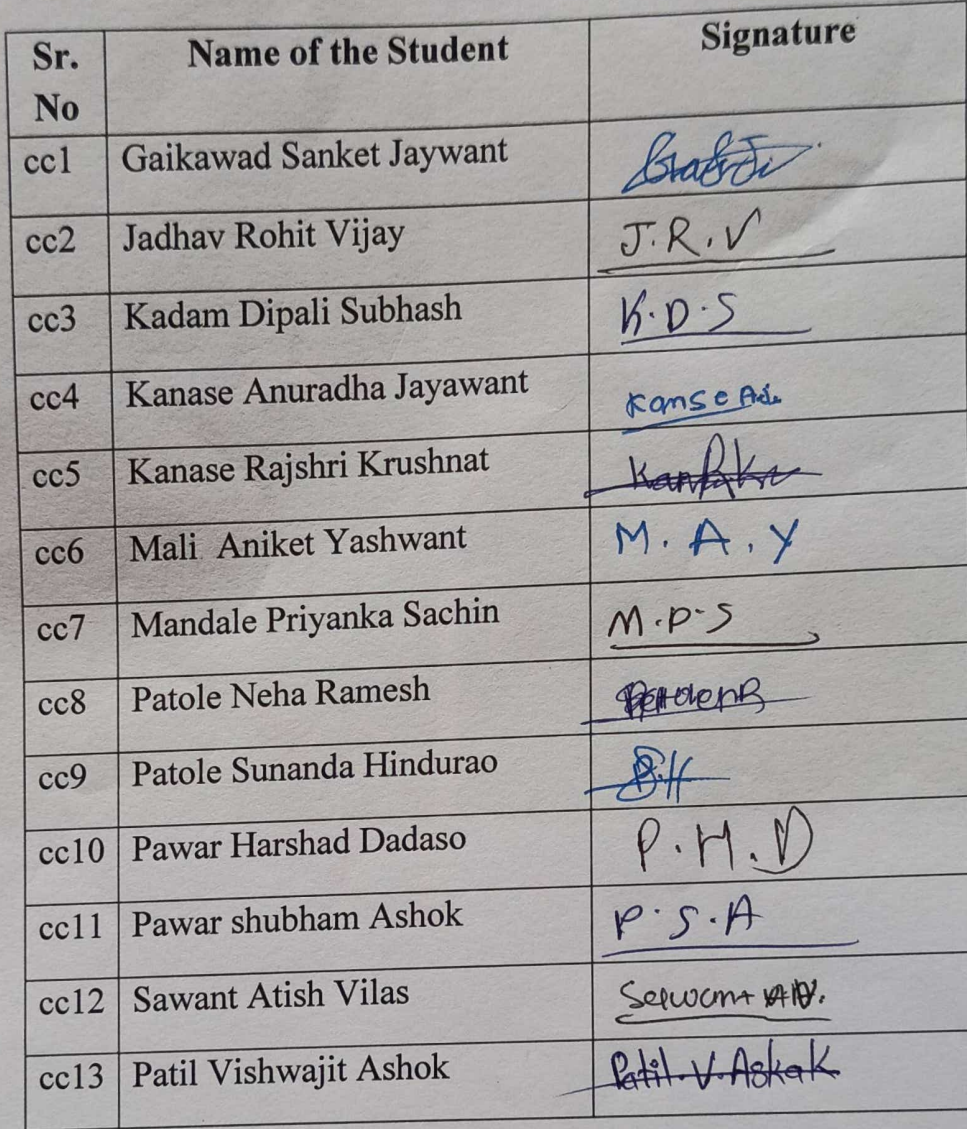 Sr. No Name of the Student Signature
cc1 Gaikawad Sanket Jaywant
cc2 Jadhav Rohit Vijay J.R.V
cc3 Kadam Dipali Subhash K.D.S
cc4 Kanase Anuradha Jayawant Kanse
cc5 Kanase Rajshri Krushnat
cc6 Mali Aniket Yashwant M.A.Y
cc7 Mandale Priyanka Sachin M.P.S
cc8 Patole Neha Ramesh
cc9 Patole Sunanda Hindurao
cc10 Pawar Harshad Dadaso P.H.D
cc11 Pawar shubham Ashok P.S.A
cc12 Sawant Atish Vilas Sawant
cc13 Patil Vishwajit Ashok Patil.V.Ashok